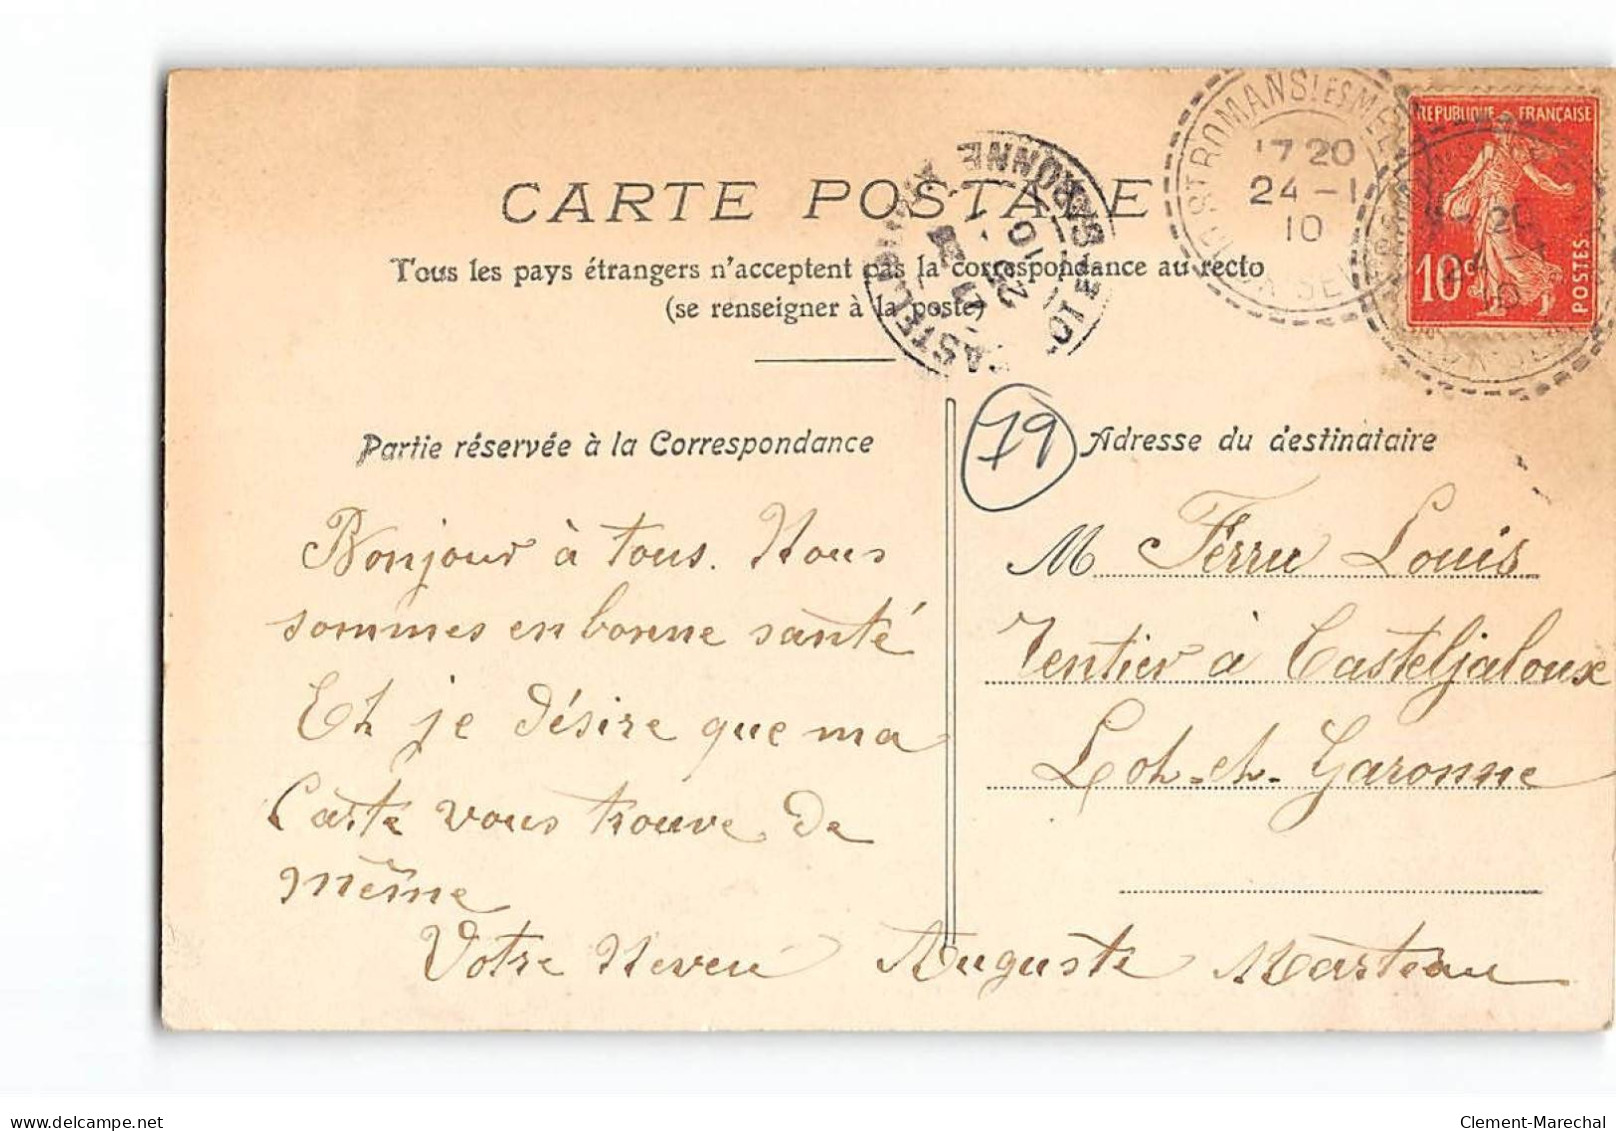 CARTE POSTALE
Tous les pays étrangers n'acceptent pas la correspondance au recto
(se renseigner à la poste)
17 20
24 - 1
10
REPUBLIQUE FRANÇAISE
10c
POSTES
Partie réservée à la Correspondance
79
Adresse du destinataire
Bonjour à tous. Nous
sommes en bonne santé
Et je désire que ma
Carte vous trouve de
même
Votre Neveu Auguste Marteau
M Ferru Louis
rentier à Casteljaloux
Lot-et-Garonne
Clement-Marechal